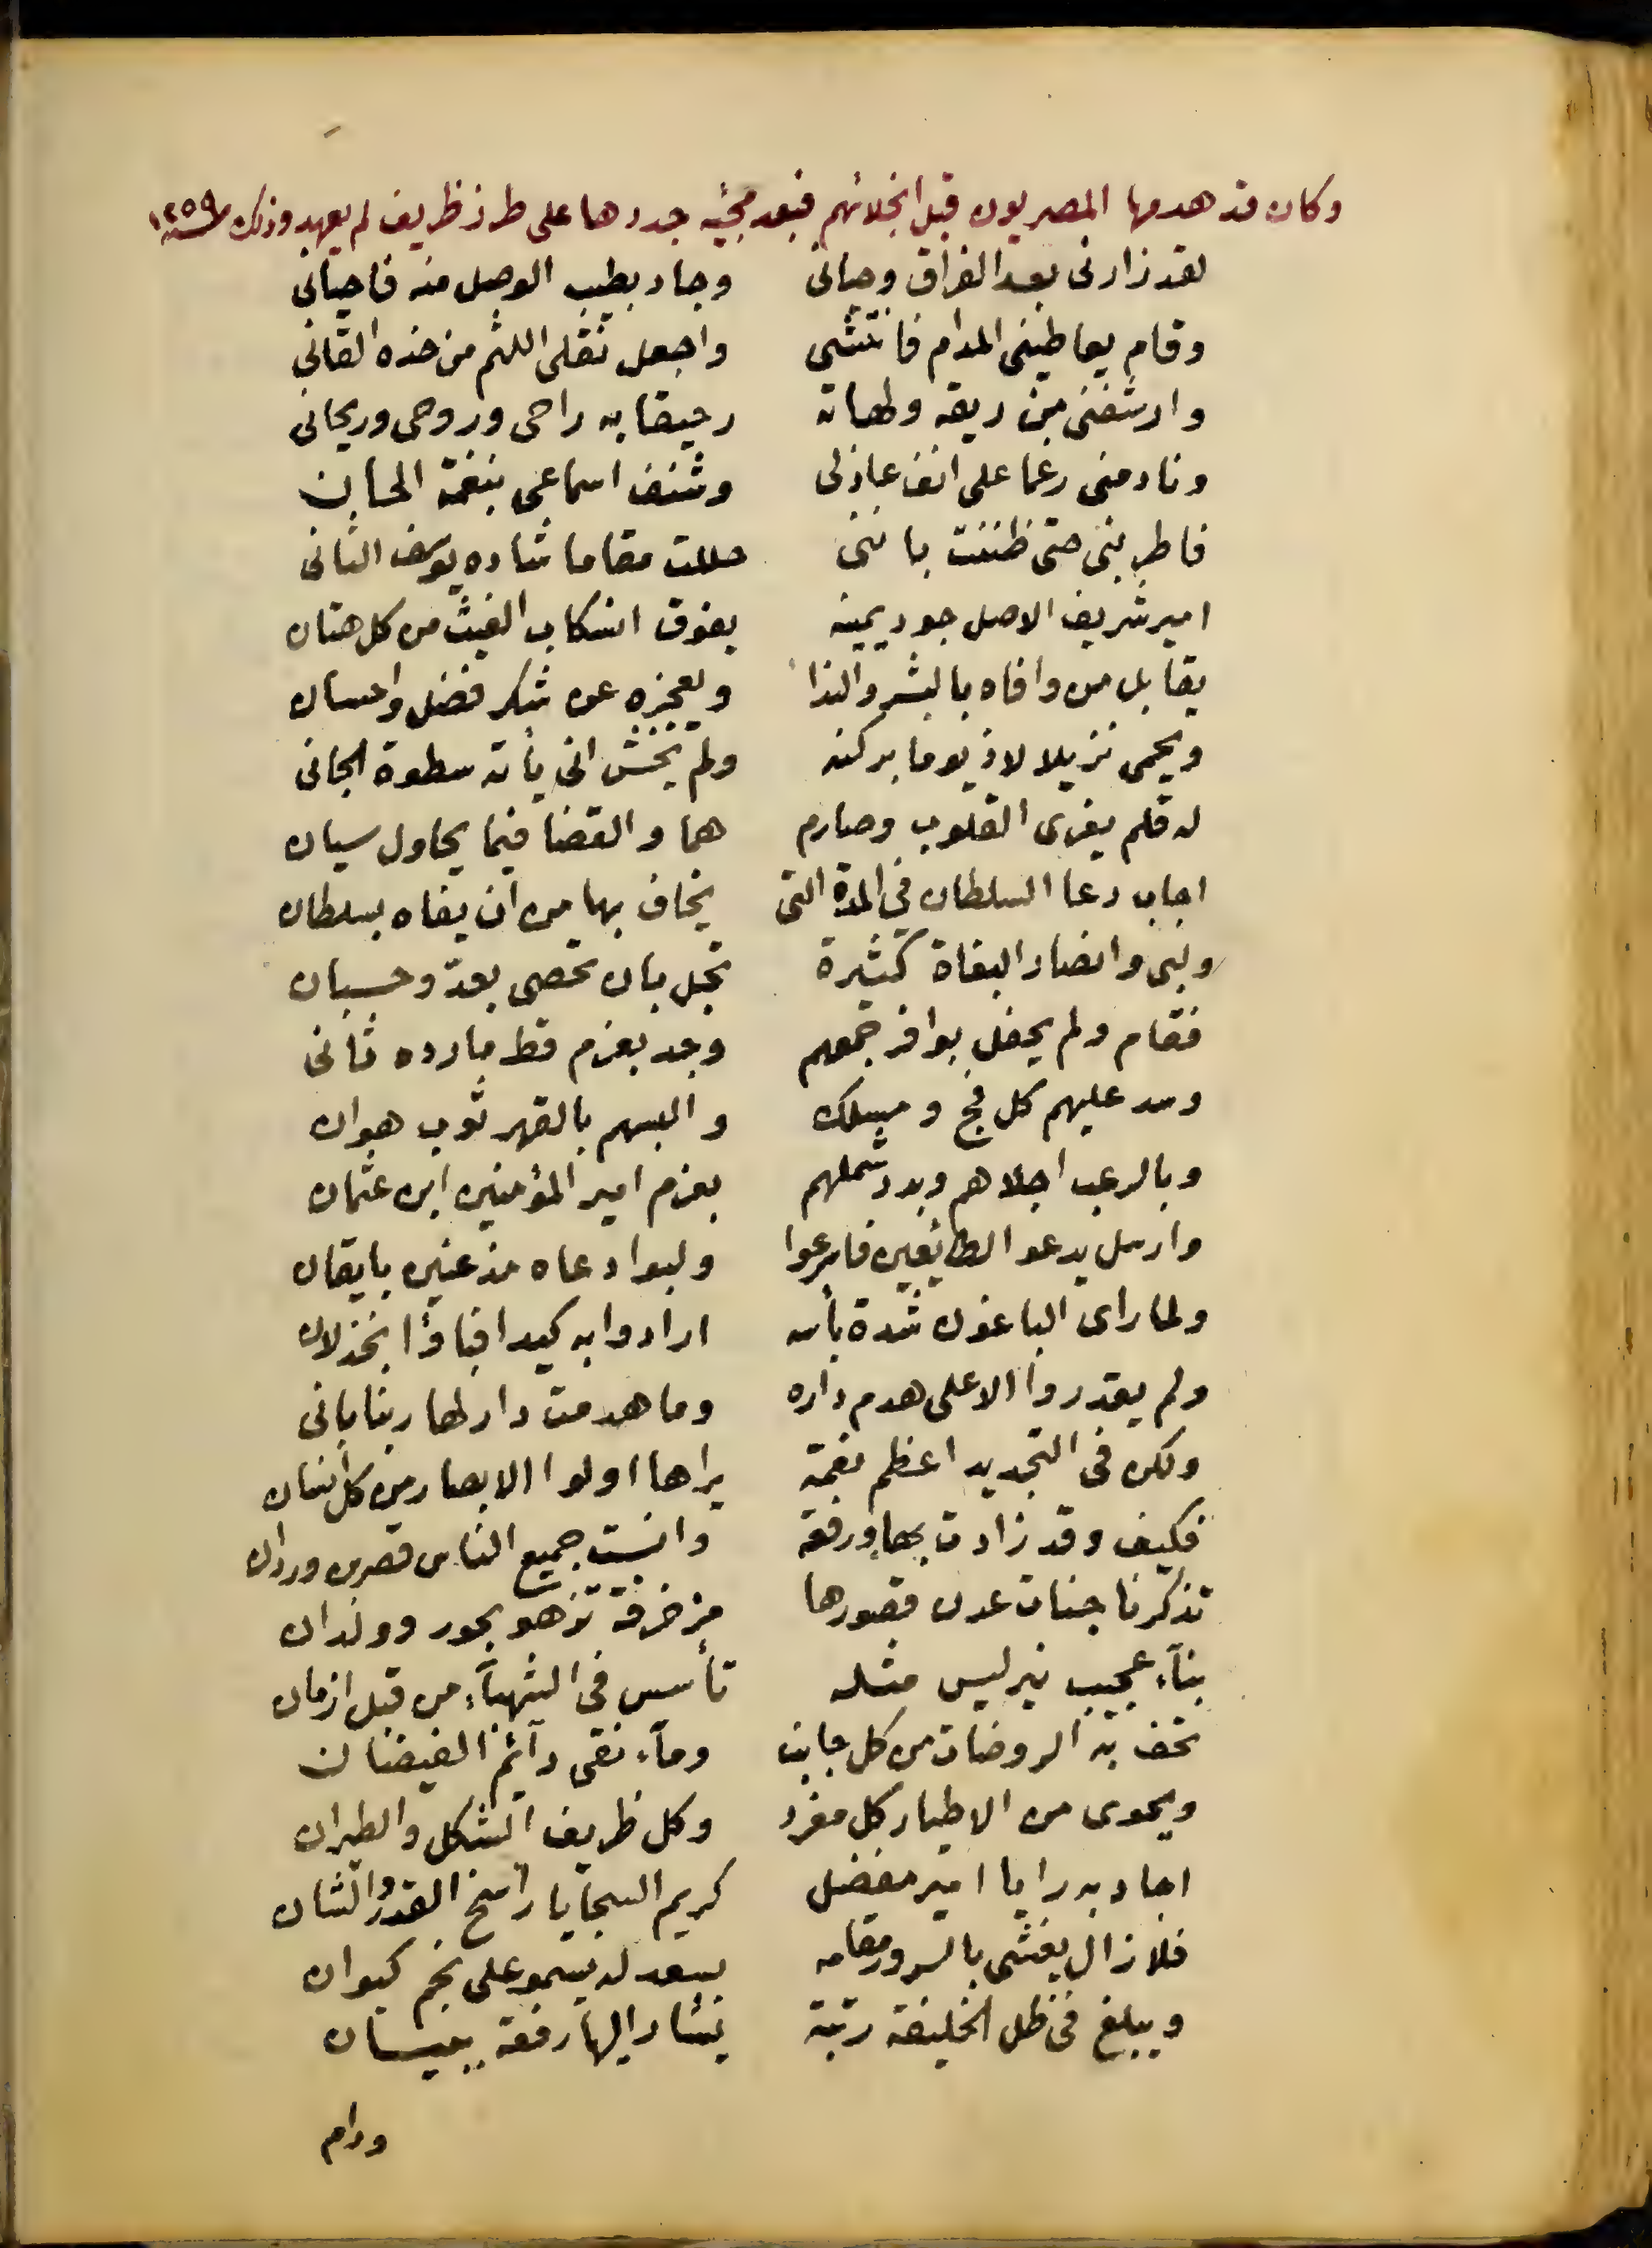 وكان قد هدمها المصريون قبل انجلائهم فبعد مجيئه جددها على طرز ظريف لم يعهد وذلك سنة ١٢٥٩
لقد زارنى بعد الفراق وحيانى وجاد بطيب الوصل منه فاحيانى
وقام يعاطينى المدام فانتشى واجعل نقلى اللثم من خده القانى
وارشفنى من ريقه ولهاته رحيقا به راحى وروحى وريحانى
ونادمنى رغما على انف عاذلى وشنف اسماعى بنغمة الحان
فاطربنى حتى ظننت باننى حللت مقاما شاده يوسف الثانى
امير شريف الاصل جود يمينه يفوق انسكاب الغيث من كل هتان
يقابل من وافاه بالبشر والندا ويعجزه عن شكر فضل واحسان
ويحمى نزيلا لاذ يوما بركنه ولم يخش انى يأته سطوة الجانى
له قلم يفرى القلوب وصارم هما والقضا فيما يحاول سيان
اجاب دعا السلطان فى المدة التى يخاف بها من ان يفاه بسلطان
ولبى وانصار البغاة كثيرة تجل بان تحصى بعد وحسبان
فقام ولم يحفل بوافر جمعهم وجد بعزم قط مارده ثانى
وسد عليهم كل فج ومسلك والبسهم بالقهر ثوب هوان
وبالرعب اجلاهم وبدد شملهم بعزم امير المؤمنين ابن عثمان
وارسل يدعو الطائعين فاسرعوا ولبوا دعاه مذعنين بايقان
ولما راى الباغون شدة بأسه ارادوا به كيدا فباؤا بخذلان
ولم يقدروا الا على هدم داره وما هدمت دار لها ربنا بانى
ولكن فى التجديد اعظم نعمة يراها اولوا الابصار من كل انسان
فكيف وقد زادت بهاء ورفعة وانست جميع الناس قصرى وردان
تذكرنا جنات عدن قصورها مزخرفة تزهو بحور وولدان
بناء عجيب نير ليس مثله تأسس فى الشهباء من قبل ازمان
تحف به الروضات من كل جانب وماء نقى دآئم الفيضان
ويحوى من الاطيار كل مغرد وكل ظريف الشكل والطيران
اجاد به رايا امير مفضل كريم السجايا راسخ القدر والشان
فلا زال يغشى بالسرور مقامه بسعد له يسمو على نجم كيوان
ويبلغ فى ظل الخليفة رتبة يشار اليها رفعة ببنان
ودام